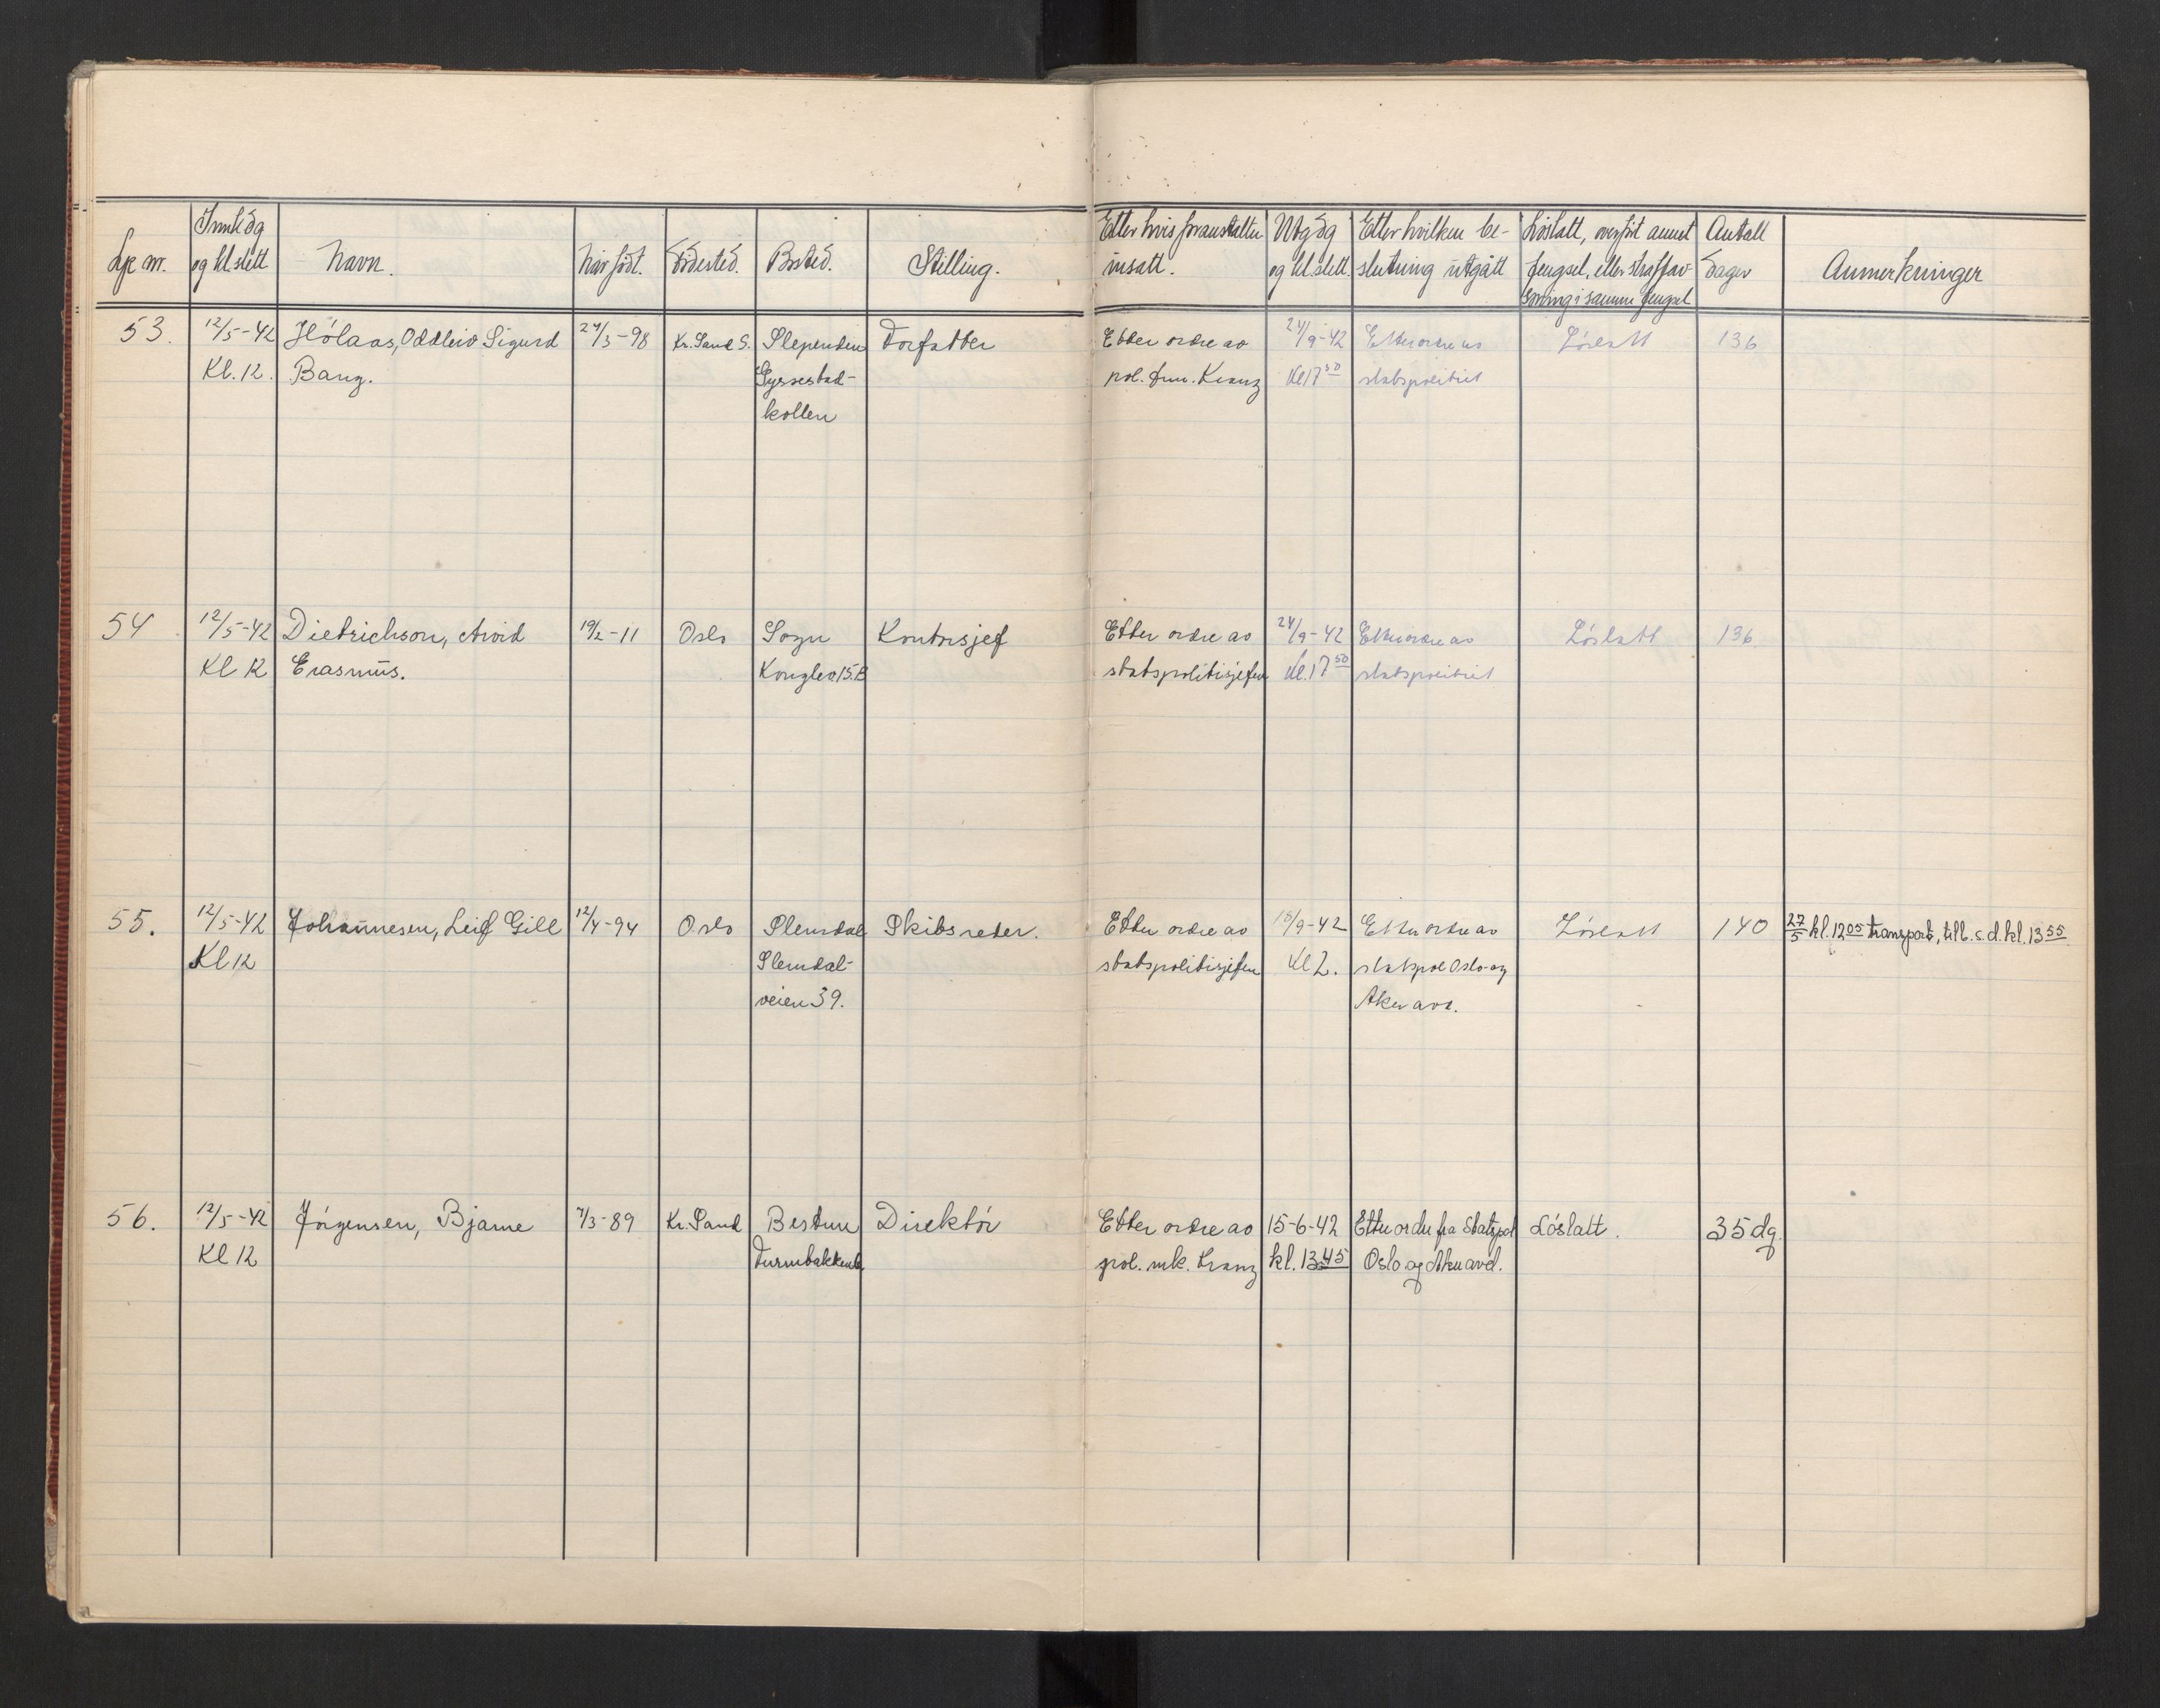 Lp. nr.
Innk. dg
og kl.slett
Navn.
Når født.
Födested.
Bosted.
Stilling.
Etter hvis foranstaltn
insatt.
Utg dg
og kl.slett.
Etter hvilken be-
slutning utgått
Löslatt, overfört annet
fengsel, eller straffav-
soning i samme fengsel
Antall
dager
Anmerkninger
53. 12/5-42 Hólaas, Oddleiv Sigurd 24/3-98 Kr.Sand S. Slependen Forfatter Etter ordre av 24/9-42 Etter ordre av Löslatt 136
Kl. 12. Bang. Gyssestad- pol. fm. Kranz Kl 17 50 statspolitiet
kollen
54 12/5-42 Dietrichson, Arvid 19/2-11 Oslo Sogn Kontorsjef Etter ordre av 24/9-42 Etter ordre av Löslatt 136
Kl 12 Erasmus. Konglev 15.B statspolitisjefen Kl. 17 50 statspolitiet
55. 12/5-42 Johannesen, Leif Gill 12/4-94 Oslo Slemdal Skibsreder. Etter ordre av /9-42 Etter ordre av Löslatt 140 27/5 kl. 12 05 transport, tilb. s.d. kl. 13 55
Kl 12 Slemdal- statspolitisjefen Kl 2. statspol Oslo og
veien 39. Aker avd.
56. 12/5-42 Jörgensen, Bjarne 7/3-89 Kr.Sand Bestum Direktör Etter ordre av 15-6-42 Etter ordre fra Statspol Löslatt. 35 dg.
Kl 12 pol. Kranz kl. 13 45 Oslo og Aker avd.